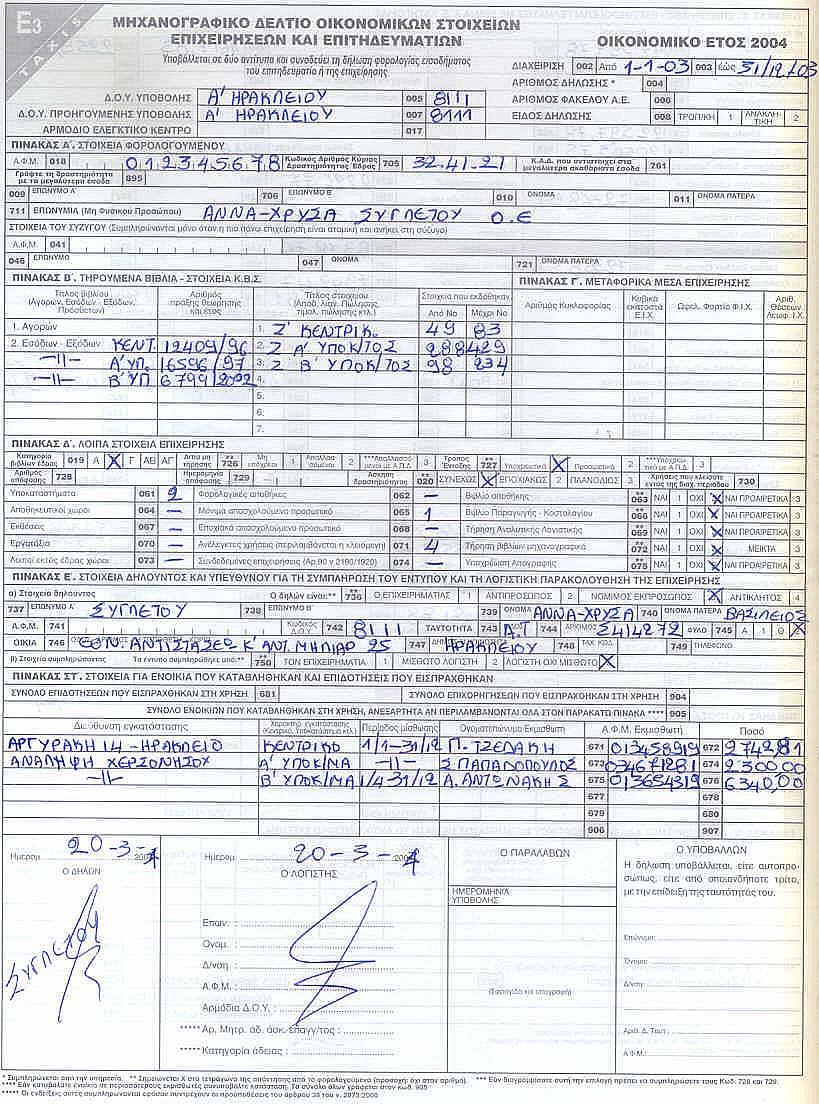 E3
TAXIS
ΜΗΧΑΝΟΓΡΑΦΙΚΟ ΔΕΛΤΙΟ ΟΙΚΟΝΟΜΙΚΩΝ ΣΤΟΙΧΕΙΩΝ
ΕΠΙΧΕΙΡΗΣΕΩΝ ΚΑΙ ΕΠΙΤΗΔΕΥΜΑΤΙΩΝ
ΟΙΚΟΝΟΜΙΚΟ ΕΤΟΣ 2004
Υποβάλλεται σε δύο αντίτυπα και συνοδεύει τη δήλωση φορολογίας εισοδήματος
του επιτηδευματία ή της επιχείρησης
ΔΙΑΧΕΙΡΙΣΗ 002 Από 1-1-03 003 έως 31/12/03
ΑΡΙΘΜΟΣ ΔΗΛΩΣΗΣ * 004
Δ.Ο.Υ. ΥΠΟΒΟΛΗΣ Α' ΗΡΑΚΛΕΙΟΥ 005 8111 ΑΡΙΘΜΟΣ ΦΑΚΕΛΟΥ Α.Ε. 006
Δ.Ο.Υ. ΠΡΟΗΓΟΥΜΕΝΗΣ ΥΠΟΒΟΛΗΣ Α' ΗΡΑΚΛΕΙΟΥ 007 8111 ΕΙΔΟΣ ΔΗΛΩΣΗΣ 008 ΤΡΟΠ/ΚΗ 1 ΑΝΑΚΛΗΤΙΚΗ 2
ΑΡΜΟΔΙΟ ΕΛΕΓΚΤΙΚΟ ΚΕΝΤΡΟ 017
ΠΙΝΑΚΑΣ Α'. ΣΤΟΙΧΕΙΑ ΦΟΡΟΛΟΓΟΥΜΕΝΟΥ
Α.Φ.Μ. 018 012345678 Κωδικός Αριθμός Κύριας Δραστηριότητας Έδρας 705 32.41.21 Κ.Α.Δ. που αντιστοιχεί στα μεγαλύτερα ακαθάριστα έσοδα 761
Γράψτε τη δραστηριότητα με τα μεγαλύτερα έσοδα 895
009 ΕΠΩΝΥΜΟ Α' 706 ΕΠΩΝΥΜΟ Β' 010 ΟΝΟΜΑ 011 ΟΝΟΜΑ ΠΑΤΕΡΑ
711 ΕΠΩΝΥΜΙΑ (Μη Φυσικού Προσώπου) ΑΝΝΑ-ΧΡΥΣΑ ΣΥΓΛΕΤΟΥ Ο.Ε
ΣΤΟΙΧΕΙΑ ΤΟΥ ΣΥΖΥΓΟΥ (Συμπληρώνονται μόνο όταν η πιο πάνω επιχείρηση είναι ατομική και ανήκει στη σύζυγο)
Α.Φ.Μ. 041
046 ΕΠΩΝΥΜΟ 047 ΟΝΟΜΑ 721 ΟΝΟΜΑ ΠΑΤΕΡΑ
ΠΙΝΑΚΑΣ Β'. ΤΗΡΟΥΜΕΝΑ ΒΙΒΛΙΑ - ΣΤΟΙΧΕΙΑ Κ.Β.Σ. ΠΙΝΑΚΑΣ Γ'. ΜΕΤΑΦΟΡΙΚΑ ΜΕΣΑ ΕΠΙΧΕΙΡΗΣΗΣ
Τίτλος βιβλίου (Αγορών, Εσόδων - Εξόδων, Πρόσθετου) Αριθμός πράξης θεώρησης και έτος Τίτλος στοιχείου (Αποδ. λιαν. Πώλησης, τιμολ. πώλησης κτλ.) Στοιχεία που εκδόθηκαν Από Νο Μέχρι Νο Αριθμός Κυκλοφορίας Κυβικά εκατοστά Ε.Ι.Χ. Ωφελ. Φορτίο Φ.Ι.Χ. Αριθ. Θέσεων Λεωφ. Ι.Χ.
1. Αγορών 1. Ζ' ΚΕΝΤΡΙΚ. 49 83
2. Εσόδων - Εξόδων ΚΕΝΤ. 12409/96 2. Ζ Α' ΥΠΟΚ/ΤΟΣ 288 429
-11- Α' ΥΠ. 16596/97 3. Ζ Β' ΥΠΟΚ/ΤΟΣ 98 234
-11- Β' ΥΠ 6799/2002 4.
5.
6.
7.
ΠΙΝΑΚΑΣ Δ'. ΛΟΙΠΑ ΣΤΟΙΧΕΙΑ ΕΠΙΧΕΙΡΗΣΗΣ
Κατηγορία βιβλίων έδρας 019 Α X Γ ΑΒ ΑΓ Αιτία μη τήρησης ** 726 Μη υπόχρεοι 1 Απαλλασσόμενοι 2 ***Απαλλασσόμενοι με Α.Π.Δ. 3 Τρόπος Ένταξης ** 727 Υποχρεωτικά X Προαιρετικά 2 ***Υποχρεωτικά με Α.Π.Δ. 3
Αριθμός απόφασης 728 Ημερομηνία απόφασης 729 Άσκηση δραστηριότητας ** 020 ΣΥΝΕΧΩΣ X ΕΠΟΧΙΑΚΩΣ 2 ΠΛΑΝΟΔΙΟΣ 3 Χρήσεις που κλείσατε εντός της διαχ. περιόδου 730
Υποκαταστήματα 061 2 Φορολογικές αποθήκες 062 — Βιβλίο αποθήκης ** 063 ΝΑΙ 1 ΟΧΙ X ΝΑΙ ΠΡΟΑΙΡΕΤΙΚΑ 3
Αποθηκευτικοί χώροι 064 — Μόνιμα απασχολούμενο προσωπικό 065 1 Βιβλίο Παραγωγής - Κοστολογίου ** 066 ΝΑΙ 1 ΟΧΙ X ΝΑΙ ΠΡΟΑΙΡΕΤΙΚΑ 3
Εκθέσεις 067 — Εποχιακά απασχολούμενο προσωπικό 068 — Τήρηση Αναλυτικής Λογιστικής ** 069 ΝΑΙ 1 ΟΧΙ X ΝΑΙ ΠΡΟΑΙΡΕΤΙΚΑ 3
Εργοτάξια 070 — Ανέλεγκτες χρήσεις (περιλαμβάνεται η κλειόμενη) 071 4 Τήρηση βιβλίων μηχανογραφικά ** 072 ΝΑΙ 1 ΟΧΙ X ΜΕΙΚΤΑ 3
Λοιποί εκτός έδρας χώροι 073 — Συνδεδεμένες επιχειρήσεις (Αρ.90 ν 2190/1920) 074 — Υποχρέωση Απογραφής ** 075 ΝΑΙ 1 ΟΧΙ X ΝΑΙ ΠΡΟΑΙΡΕΤΙΚΑ 3
ΠΙΝΑΚΑΣ Ε'. ΣΤΟΙΧΕΙΑ ΔΗΛΟΥΝΤΟΣ ΚΑΙ ΥΠΕΥΘΥΝΟΥ ΓΙΑ ΤΗ ΣΥΜΠΛΗΡΩΣΗ ΤΟΥ ΕΝΤΥΠΟΥ ΚΑΙ ΤΗ ΛΟΓΙΣΤΙΚΗ ΠΑΡΑΚΟΛΟΥΘΗΣΗ ΤΗΣ ΕΠΙΧΕΙΡΗΣΗΣ
α) Στοιχεία δηλούντος Ο δηλών είναι:** ** 736 Ο ΕΠΙΧΕΙΡΗΜΑΤΙΑΣ 1 ΑΝΤΙΠΡΟΣΩΠΟΣ 2 ΝΟΜΙΜΟΣ ΕΚΠΡΟΣΩΠΟΣ X ΑΝΤΙΚΛΗΤΟΣ 4
737 ΕΠΩΝΥΜΟ Α' ΣΥΓΛΕΤΟΥ 738 ΕΠΩΝΥΜΟ Β' 739 ΟΝΟΜΑ ΑΝΝΑ-ΧΡΥΣΑ 740 ΟΝΟΜΑ ΠΑΤΕΡΑ ΒΑΣΙΛΕΙΟΣ
Α.Φ.Μ. 741 Κωδικός Δ.Ο.Υ. 742 8111 ΤΑΥΤΟΤΗΤΑ 743 Α.Τ 744 ΑΡΙΘΜΟΣ Σ414272 ΦΥΛΟ 745 Α 1 Θ X
ΟΙΚΙΑ 746 ΕΘΝ. ΑΝΤΙΣΤΑΣΕΩΣ Κ' ΑΝΤ. ΜΗΛΙΑΡ 25 747 ΗΡΑΚΛΕΙΟΥ 748 ΤΑΧ. ΚΩΔ. 749 ΤΗΛΕΦΩΝΟ
β) Στοιχεία συμπληρώσαντος Το έντυπο συμπληρώθηκε από:** ** 750 ΤΟΝ ΕΠΙΧΕΙΡΗΜΑΤΙΑ 1 ΜΙΣΘΩΤΟ ΛΟΓΙΣΤΗ 2 ΛΟΓΙΣΤΗ ΟΧΙ ΜΙΣΘΩΤΟ X
ΠΙΝΑΚΑΣ ΣΤ'. ΣΤΟΙΧΕΙΑ ΓΙΑ ΕΝΟΙΚΙΑ ΠΟΥ ΚΑΤΑΒΛΗΘΗΚΑΝ ΚΑΙ ΕΠΙΔΟΤΗΣΕΙΣ ΠΟΥ ΕΙΣΠΡΑΧΘΗΚΑΝ
ΣΥΝΟΛΟ ΕΠΙΔΟΤΗΣΕΩΝ ΠΟΥ ΕΙΣΠΡΑΧΘΗΚΑΝ ΣΤΗ ΧΡΗΣΗ 681 ΣΥΝΟΛΟ ΕΠΙΧΟΡΗΓΗΣΕΩΝ ΠΟΥ ΕΙΣΠΡΑΧΘΗΚΑΝ ΣΤΗ ΧΡΗΣΗ 904
ΣΥΝΟΛΟ ΕΝΟΙΚΙΩΝ ΠΟΥ ΚΑΤΑΒΛΗΘΗΚΑΝ ΣΤΗ ΧΡΗΣΗ, ΑΝΕΞΑΡΤΗΤΑ ΑΝ ΠΕΡΙΛΑΜΒΑΝΟΝΤΑΙ ΟΛΑ ΣΤΟΝ ΠΑΡΑΚΑΤΩ ΠΙΝΑΚΑ **** 905
Διεύθυνση εγκατάστασης Χαρακτηρ. εγκατάστασης (Κεντρικό, Υποκατάστημα κτλ.) Περίοδος μίσθωσης Ονοματεπώνυμο Εκμισθωτή Α.Φ.Μ. Εκμισθωτή Ποσό
ΑΡΓΥΡΑΚΗ 14 - ΗΡΑΚΛΕΙΟ ΚΕΝΤΡΙΚΟ 1/1-31/12 Π. ΤΖΕΔΑΚΗ 671 013458919 672 2742,81
ΑΝΑΛΗΨΗ ΧΕΡΣΟΝΗΣΟΥ Α' ΥΠΟΚ/ΜΑ -11- Σ. ΠΑΠΑΔΟΠΟΥΛΟΣ 673 034671281 674 2300,00
-11- Β' ΥΠΟΚ/ΜΑ 1/4-31/12 Α. ΑΝΤΩΝΑΚΗΣ 675 013654319 676 6340,00
677 678
679 680
906 907
Ημερομ. 20-3-4 Ημερομ. 20-3-4 Ο ΠΑΡΑΛΑΒΩΝ Ο ΥΠΟΒΑΛΛΩΝ
Ο ΔΗΛΩΝ Ο ΛΟΓΙΣΤΗΣ
Η δήλωση υποβάλλεται, είτε αυτοπροσώπως, είτε από οποιονδήποτε τρίτο, με την επίδειξη της ταυτότητάς του.
ΗΜΕΡΟΜΗΝΙΑ ΥΠΟΒΟΛΗΣ
ΣΥΓΛΕΤΟΥ
Επων. :
Ονομ. :
Δ/νση :
Α.Φ.Μ. :
Αρμόδια Δ.Ο.Υ. :
*****Αρ. Μητρ. αδ. άσκ. επαγγ/τος :
*****Κατηγορία άδειας :
(Σφραγίδα και υπογραφή)
Επώνυμο:
Όνομα:
Δ/νση:
Αριθ. Δ. Ταυτ.:
Α.Φ.Μ.:
* Συμπληρώνεται από την υπηρεσία. ** Σημειώνεται Χ στα τετράγωνα της απάντησης από το φορολογούμενο (προσοχή: όχι στον αριθμό). *** Εάν διαγραμμίσατε αυτή την επιλογή πρέπει να συμπληρώσετε τους Κωδ. 728 και 729.
**** Εάν καταβάλατε ενοίκια σε περισσότερους εκμισθωτές συνυποβάλετε κατάσταση. Τα σύνολα όλων γράφεται στον κωδ. 905
***** Οι ενδείξεις αυτές συμπληρώνονται εφόσον συντρέχουν οι προϋποθέσεις του άρθρου 38 του ν. 2873/2000